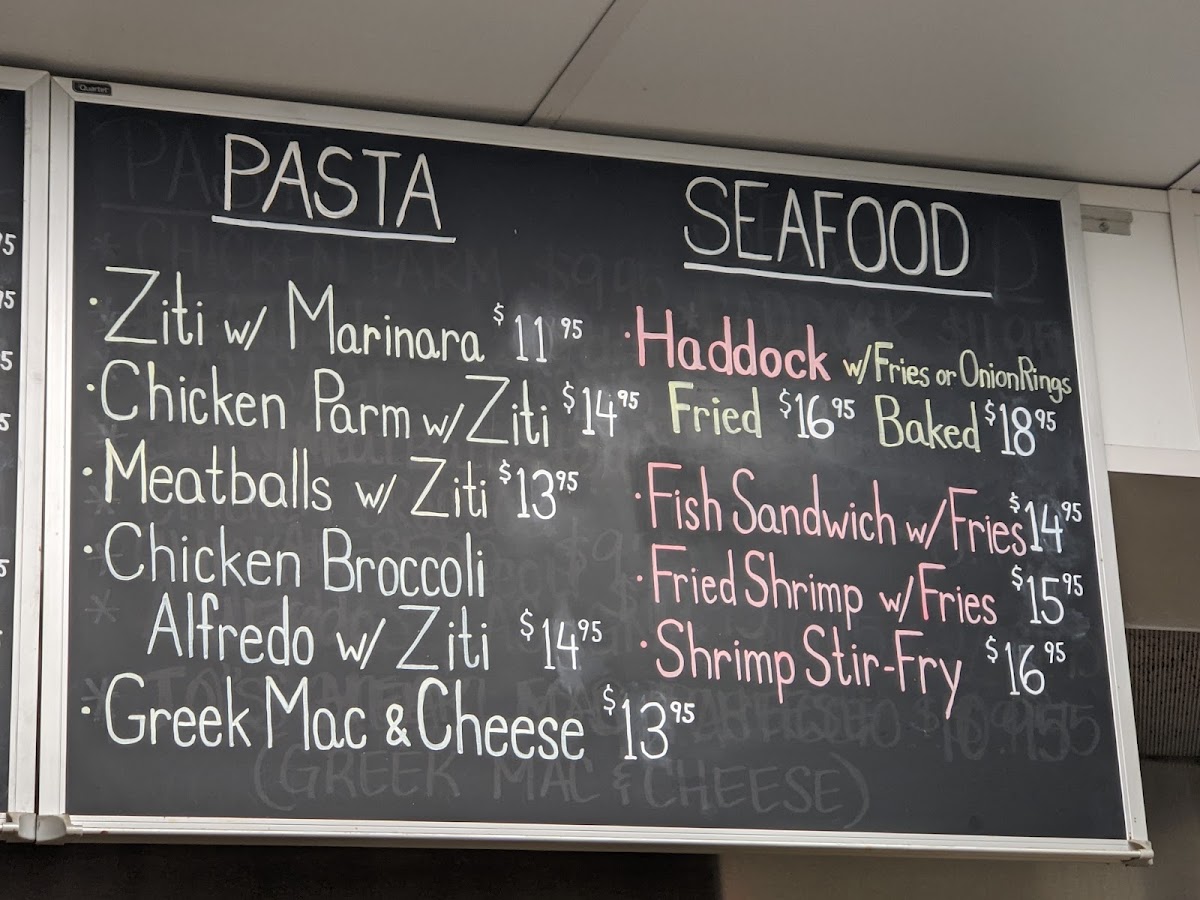 Quartet
PASTA
· Ziti w/ Marinara $11.95
· Chicken Parm w/ Ziti $14.95
· Meatballs w/ Ziti $13.95
· Chicken Broccoli
Alfredo w/ Ziti $14.95
· Greek Mac & Cheese $13.95
(GREEK MAC & CHEESE)
SEAFOOD
· Haddock w/ Fries or Onion Rings
Fried $16.95 Baked $18.95
· Fish Sandwich w/ Fries $14.95
· Fried Shrimp w/ Fries $15.95
· Shrimp Stir-Fry $16.95